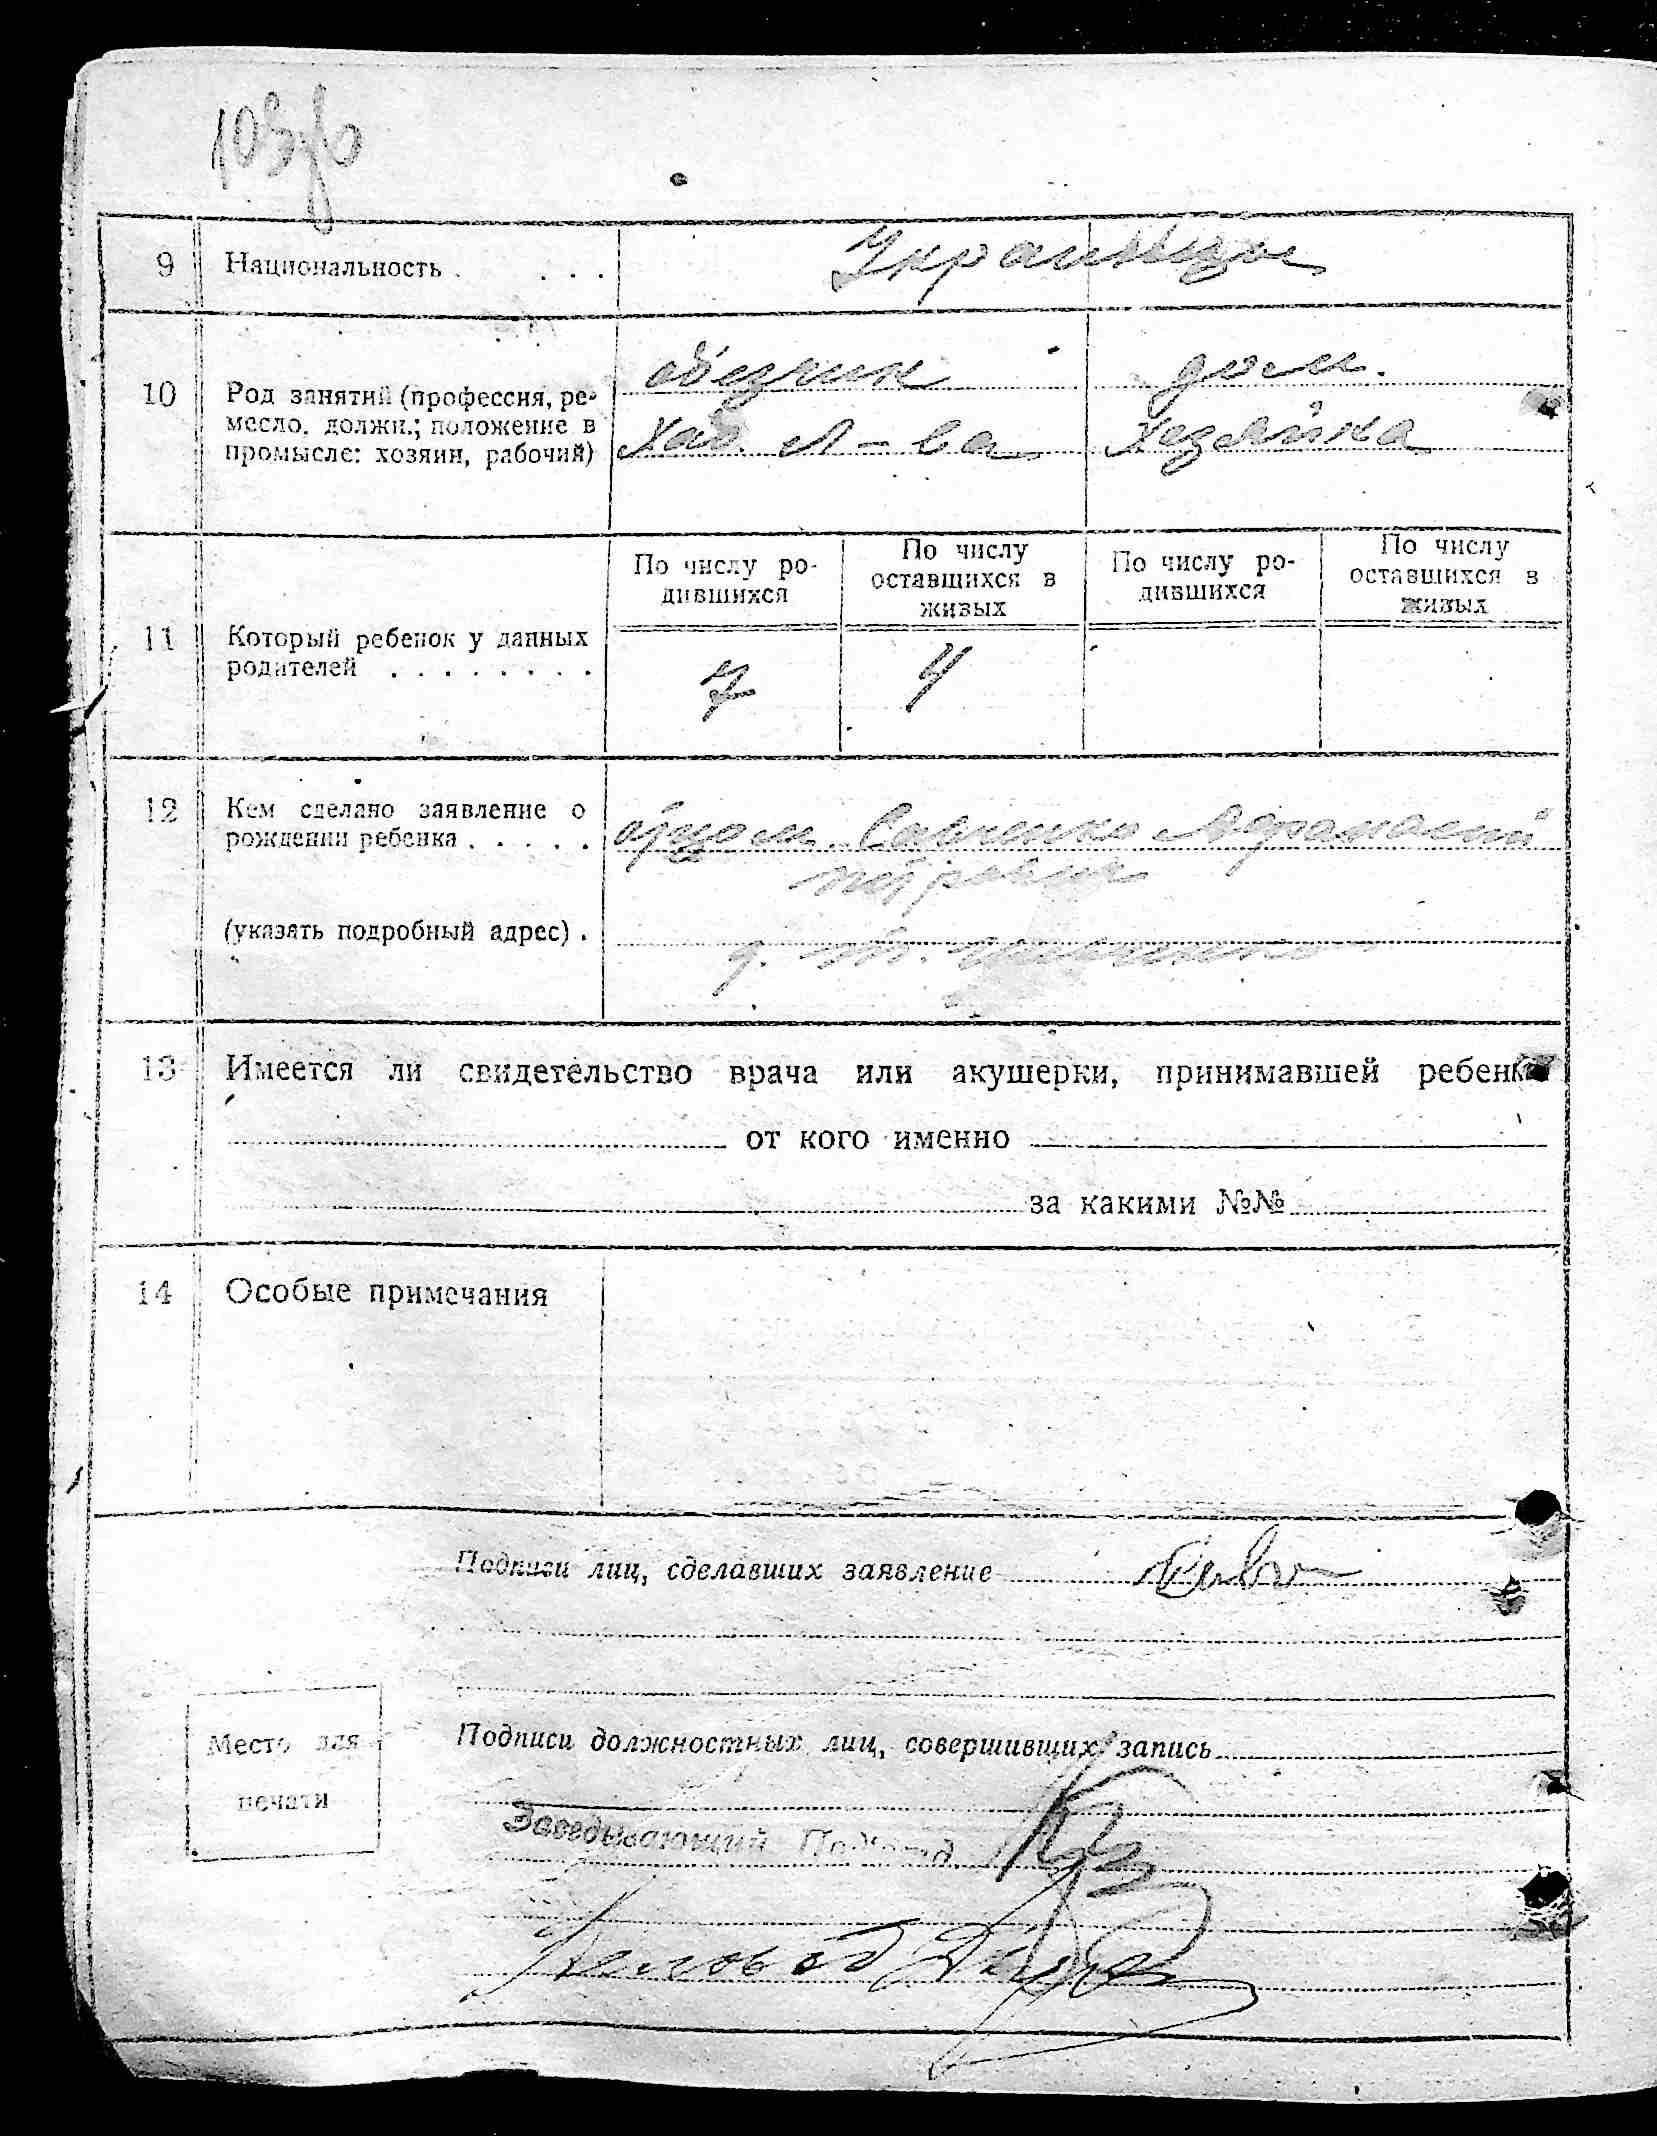 9 Национальность . . . . Украинцы
10 Род занятий (профессия, ре-
месло, должн.; положение в
промысле: хозяин, рабочий)
объезчик
Хаб. л-ва
дом.
Хозяйка
11 Который ребенок у данных
родителей . . . . . . . .
По числу ро-
дившихся
По числу
оставшихся в
живых
По числу ро-
дившихся
По числу
оставшихся в
живых
7 4
12 Кем сделано заявление о
рождении ребенка . . . . .
отцом Савченко Афанасий
Петрович
(указать подробный адрес) .
13 Имеется ли свидетельство врача или акушерки, принимавшей ребенка
от кого именно
за какими №№
14 Особые примечания
Подписи лиц, сделавших заявление
Место для
печати
Подписи должностных лиц, совершивших запись
Заведывающий
Деловод